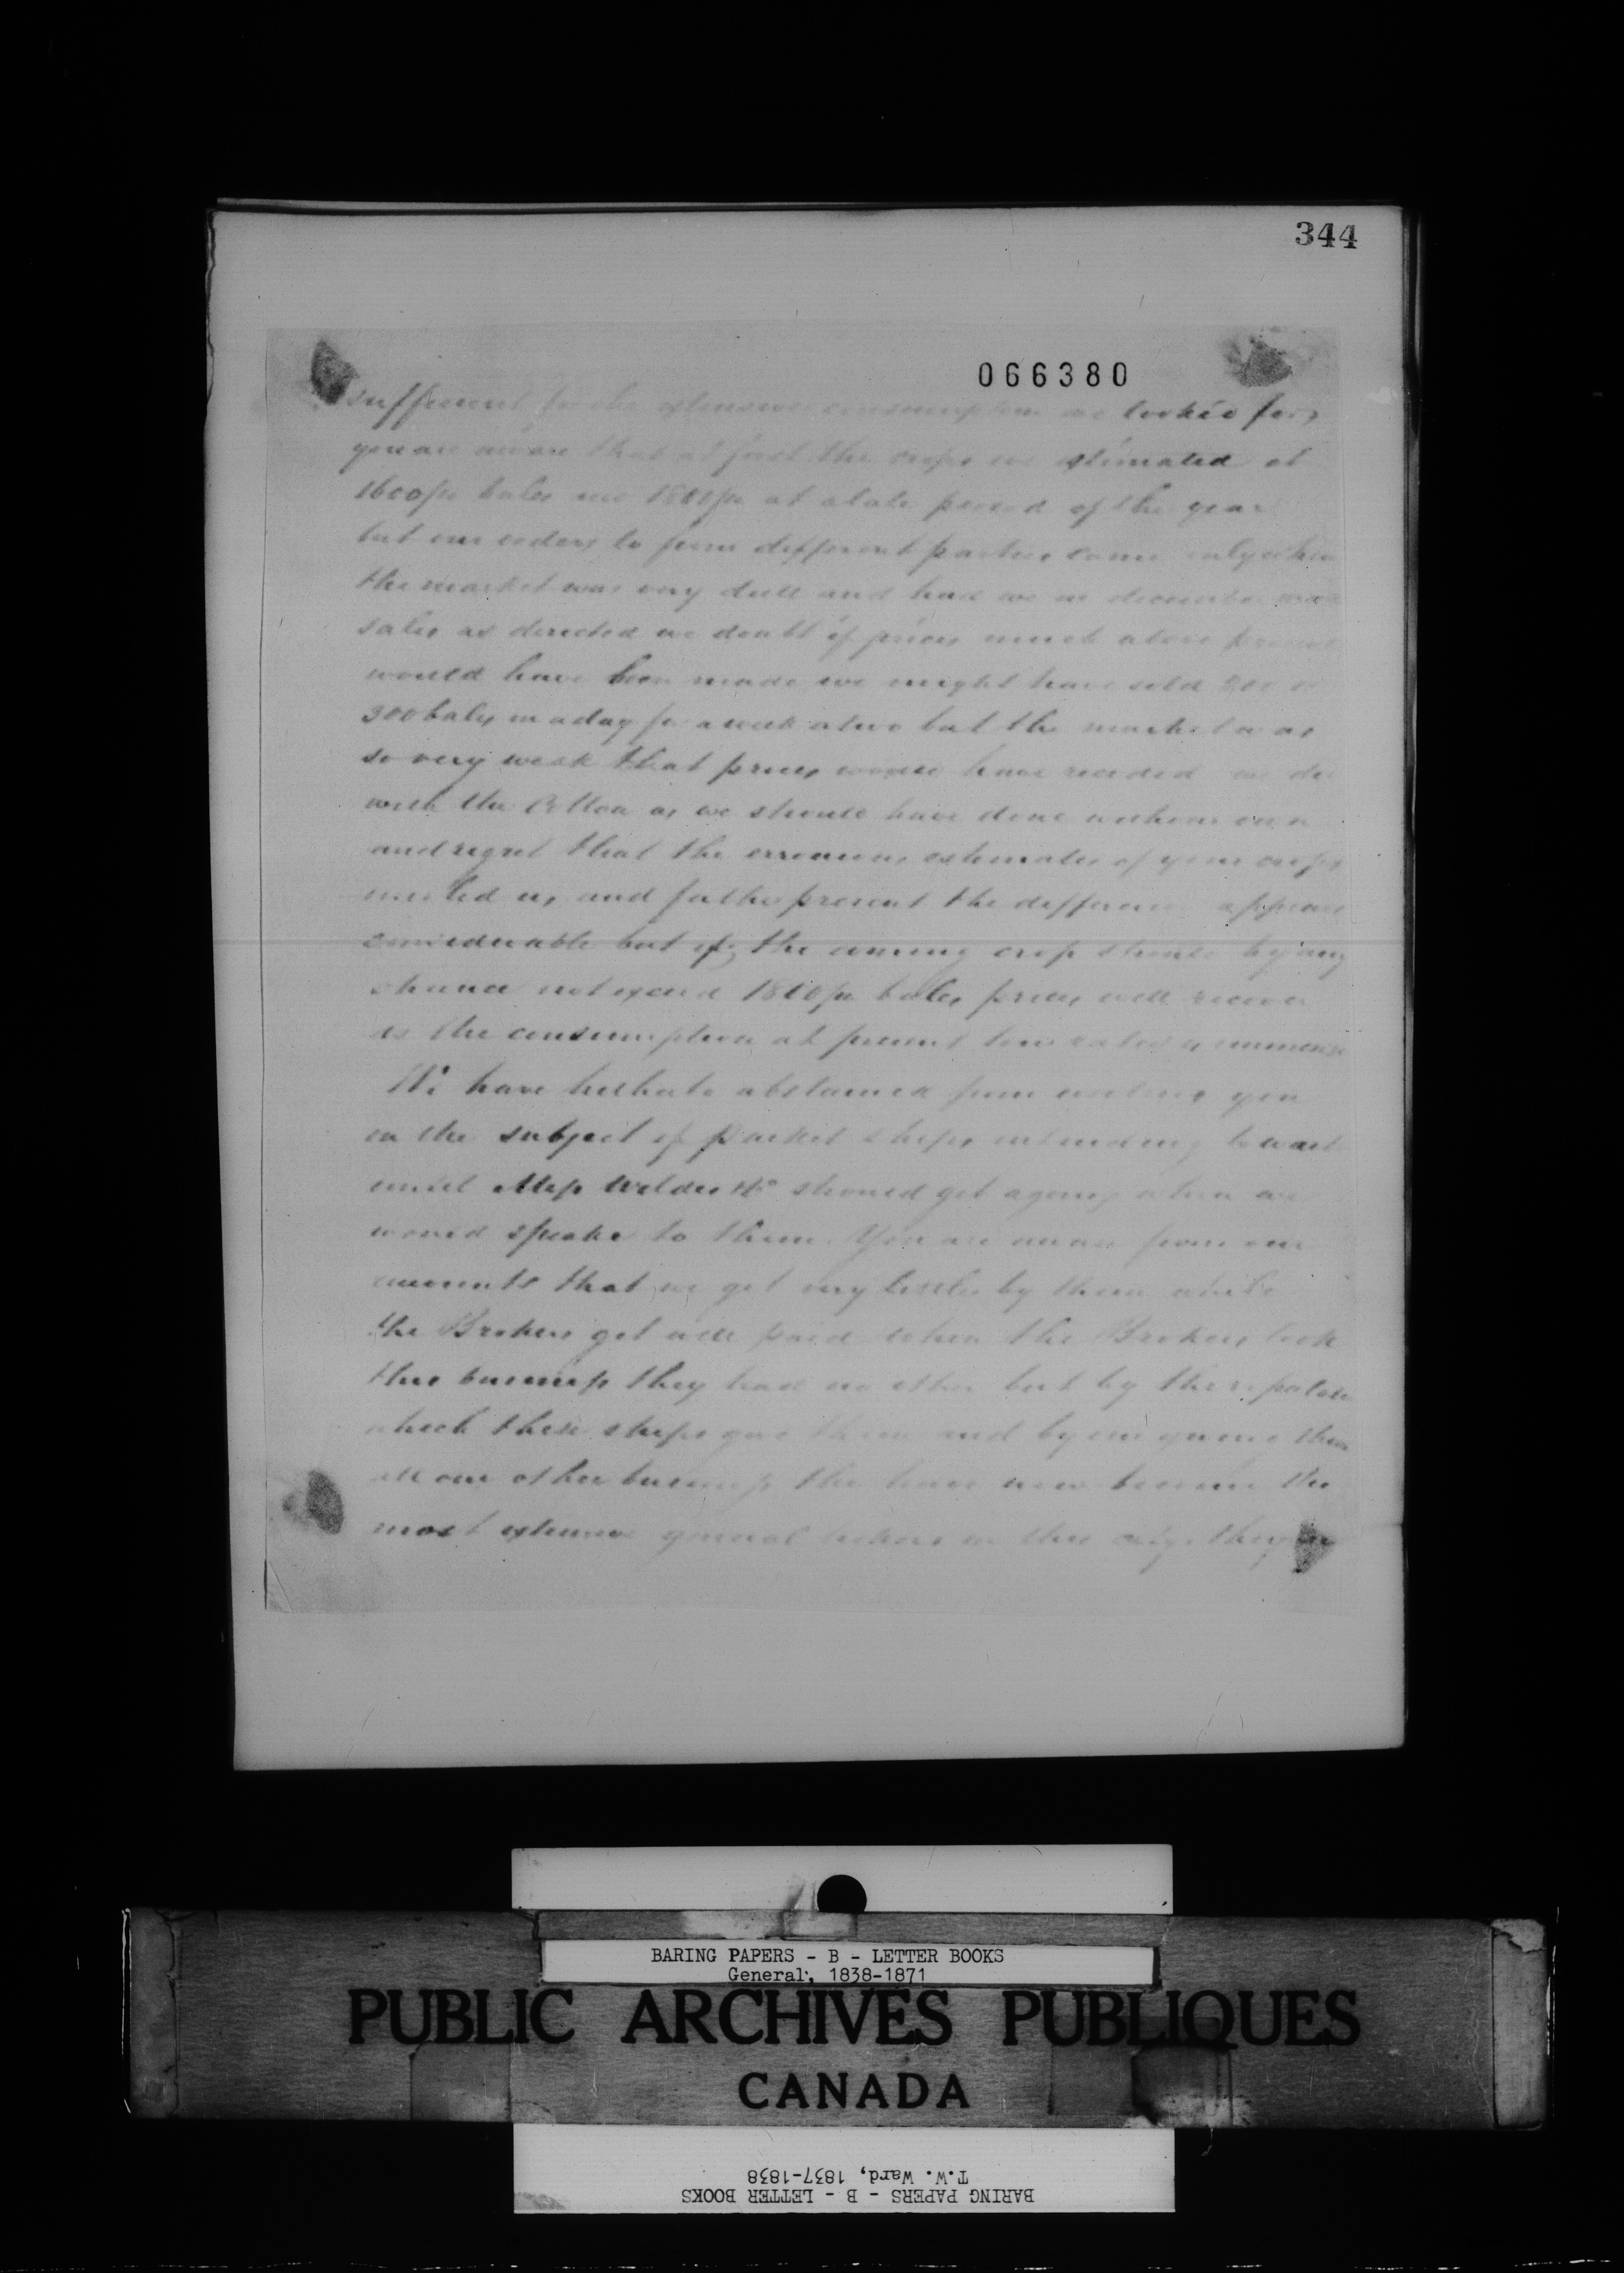 344
066380
sufficient for the extensive consumption we looked for,
you are aware that at first the crops we estimated at
1600/m bales and 1800/m at a late period of the year
but our orders to from different parties came only when
the market was very dull and had we in december made
sales as directed we doubt if prices much above present
would have been made we might have sold 200 or
300 bales in a day for a week or two but the market was
so very weak that prices would have receded we did
with the Cotton as we should have done with our own
and regret that the erroneous estimates of your crops
misled us, and for the present the difference appears
considerable but if the coming crop should by any
chance not exceed 1800/m bales prices will recover
as the consumption at present low rates is immense
We have hitherto abstained from writing you
on the subject of packet ships intending to wait
until Mess Wildes & Co should get agoing when we
would speake to them. You are aware from our
accounts that we get very little by them while
the Brokers get well paid when the Brokers took
this business they had no other but by the
which these ships gave them and by our giving them
all our other business the have now become the
most extensive general brokers in this city they
BARING PAPERS - B - LETTER BOOKS
General, 1838-1871
PUBLIC ARCHIVES PUBLIQUES
CANADA
T.W. Ward, 1837-1838
BARING PAPERS - B - LETTER BOOKS